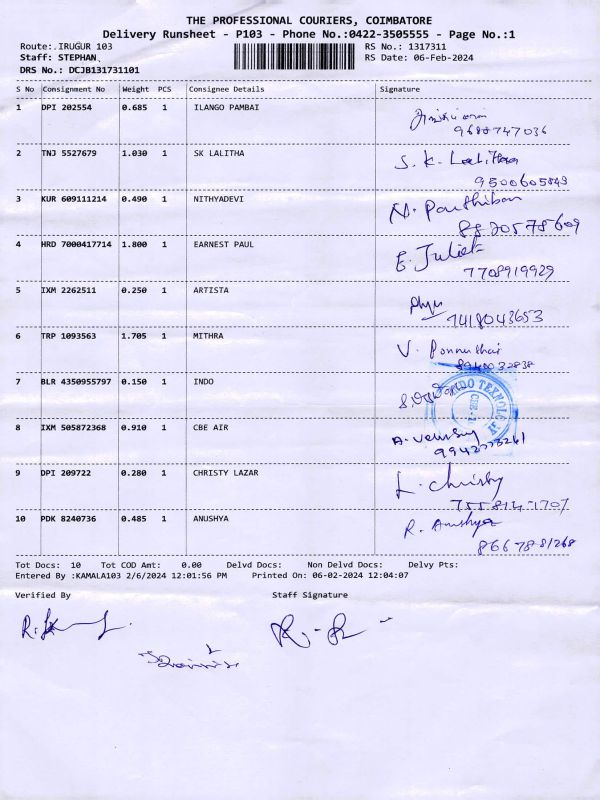 THE PROFESSIONAL COURIERS, COIMBATORE
Delivery Runsheet - P103 - Phone No.:0422-3505555 - Page No.:1
Route:.IRUGUR 103 RS No.: 1317311
Staff: STEPHAN、 RS Date: 06-Feb-2024
DRS No.: DCJB131731101
S No Consignment No Weight PCS Consignee Details Signature
1 DPI 202554 0.685 1 ILANGO PAMBAI
9688747036
2 TNJ 5527679 1.030 1 SK LALITHA S. K. Lalitha
9500605843
3 KUR 609111214 0.490 1 NITHYADEVI M. Parthiban
8820578609
4 HRD 7000417714 1.800 1 EARNEST PAUL E. Juliet
7708919929
5 IXM 2262511 0.250 1 ARTISTA
7418043653
6 TRP 1093563 1.705 1 MITHRA V. Ponnuthai
7 BLR 4350955797 0.150 1 INDO
INDO TEKNOLOGY
8 IXM 505872368 0.910 1 CBE AIR
9 DPI 209722 0.280 1 CHRISTY LAZAR L. Christy
10 PDK 8240736 0.485 1 ANUSHYA R. Anushya
Tot Docs: 10 Tot COD Amt: 0.00 Delvd Docs: Non Delvd Docs: Delvy Pts:
Entered By :KAMALA103 2/6/2024 12:01:56 PM Printed On: 06-02-2024 12:04:07
Verified By Staff Signature